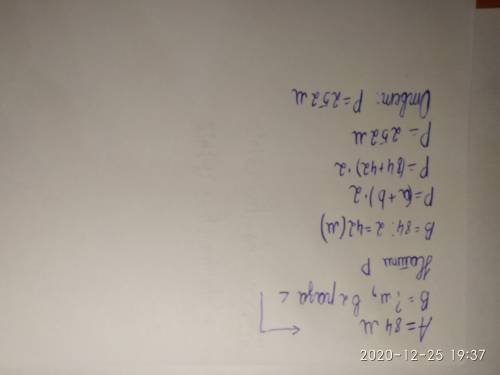 A = 84 м
B = ? м, в 2 раза <
Найти P
B = 84 : 2 = 42 (м)
P = (a + b) · 2
P = (84 + 42) · 2
P = 252 м
Ответ: P = 252 м
2020-12-25 19:37